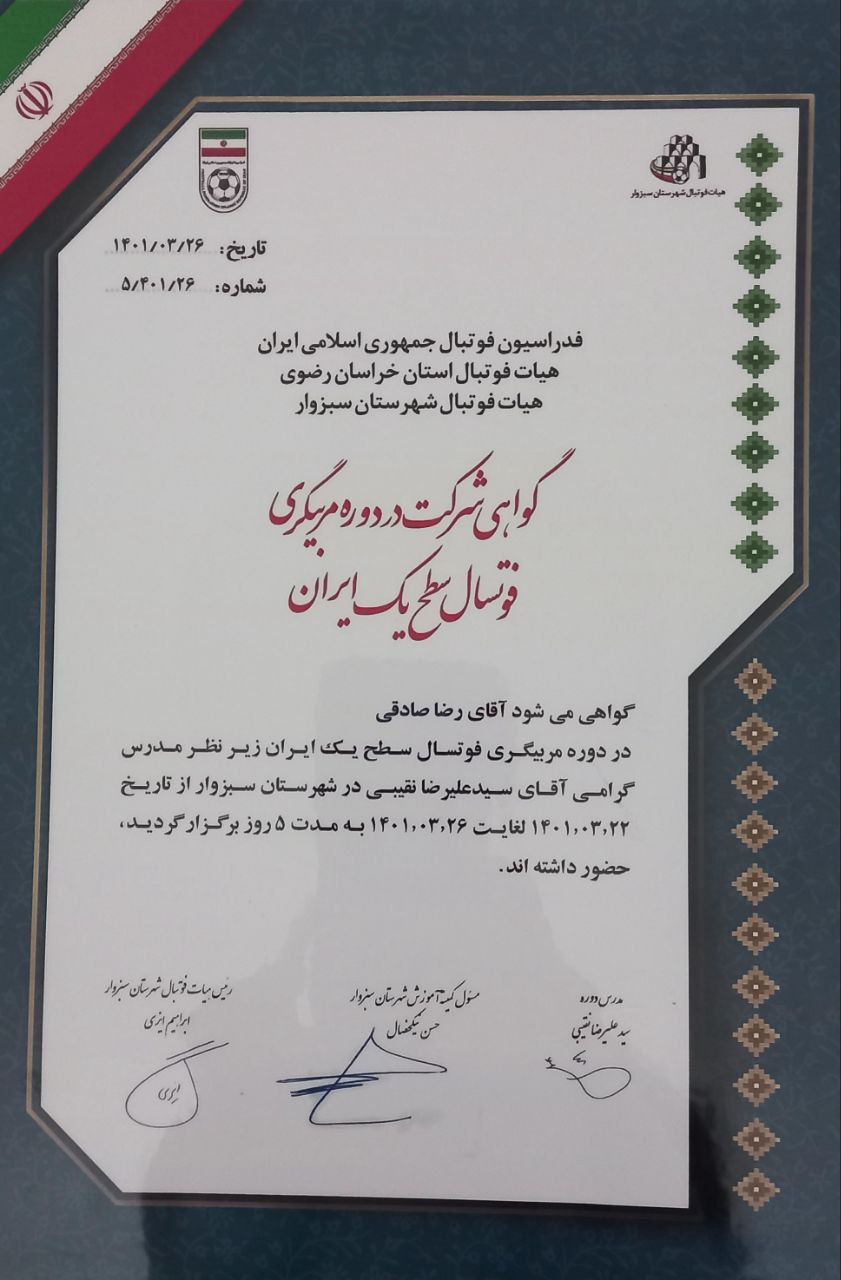 هیات فوتبال شهرستان سبزوار
تاریخ: ۱۴۰۱/۰۳/۲۶
شماره: ۵/۴۰۱/۲۶
فدراسیون فوتبال جمهوری اسلامی ایران
هیات فوتبال استان خراسان رضوی
هیات فوتبال شهرستان سبزوار
گواهی شرکت در دوره مربیگری
فوتسال سطح یک ایران
گواهی می شود آقای رضا صادقی
در دوره مربیگری فوتسال سطح یک ایران زیر نظر مدرس
گرامی آقای سیدعلیرضا نقیبی در شهرستان سبزوار از تاریخ
۱۴۰۱,۰۳,۲۲ لغایت ۱۴۰۱,۰۳,۲۶ به مدت ۵ روز برگزار گردید،
حضور داشته اند.
مدرس دوره
سید علیرضا نقیبی
مسئول کمیته آموزش شهرستان سبزوار
حسن نیکخصال
رئیس هیات فوتبال شهرستان سبزوار
ابراهیم ایزی